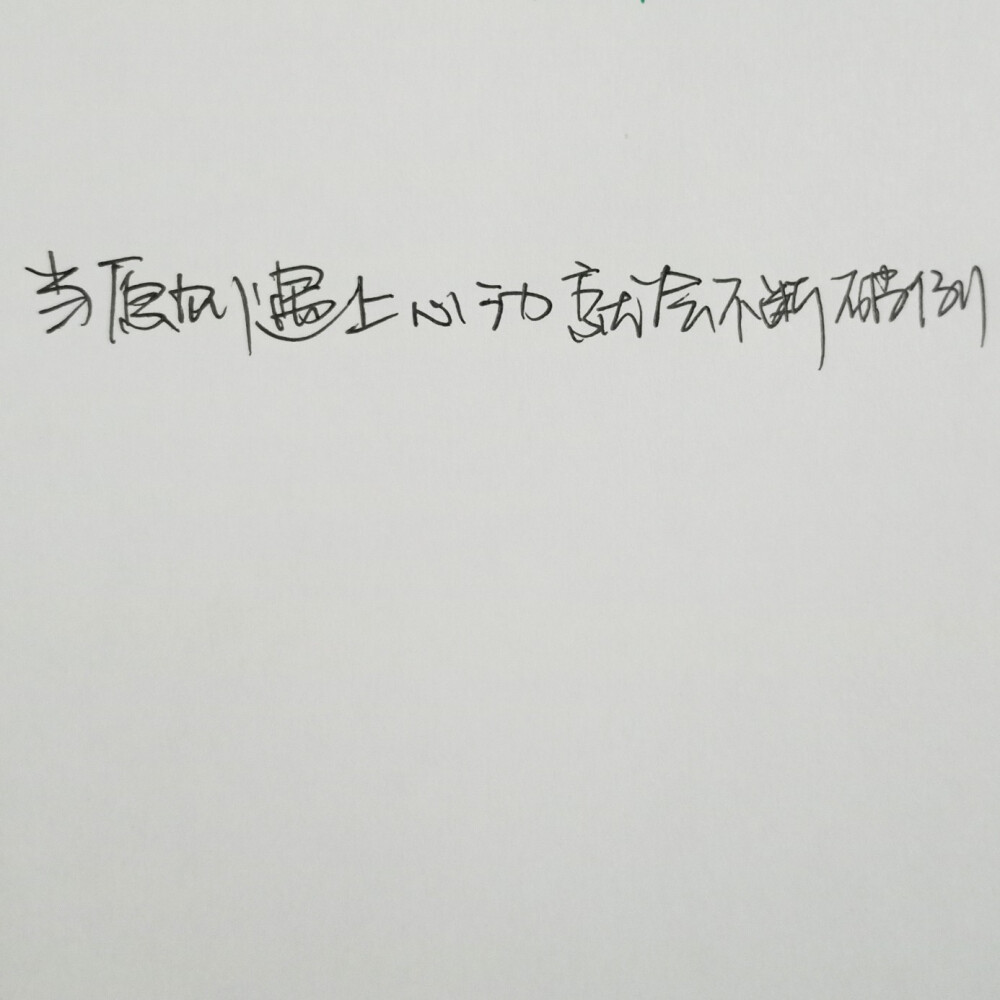 当原则遇上心动就会不断破例